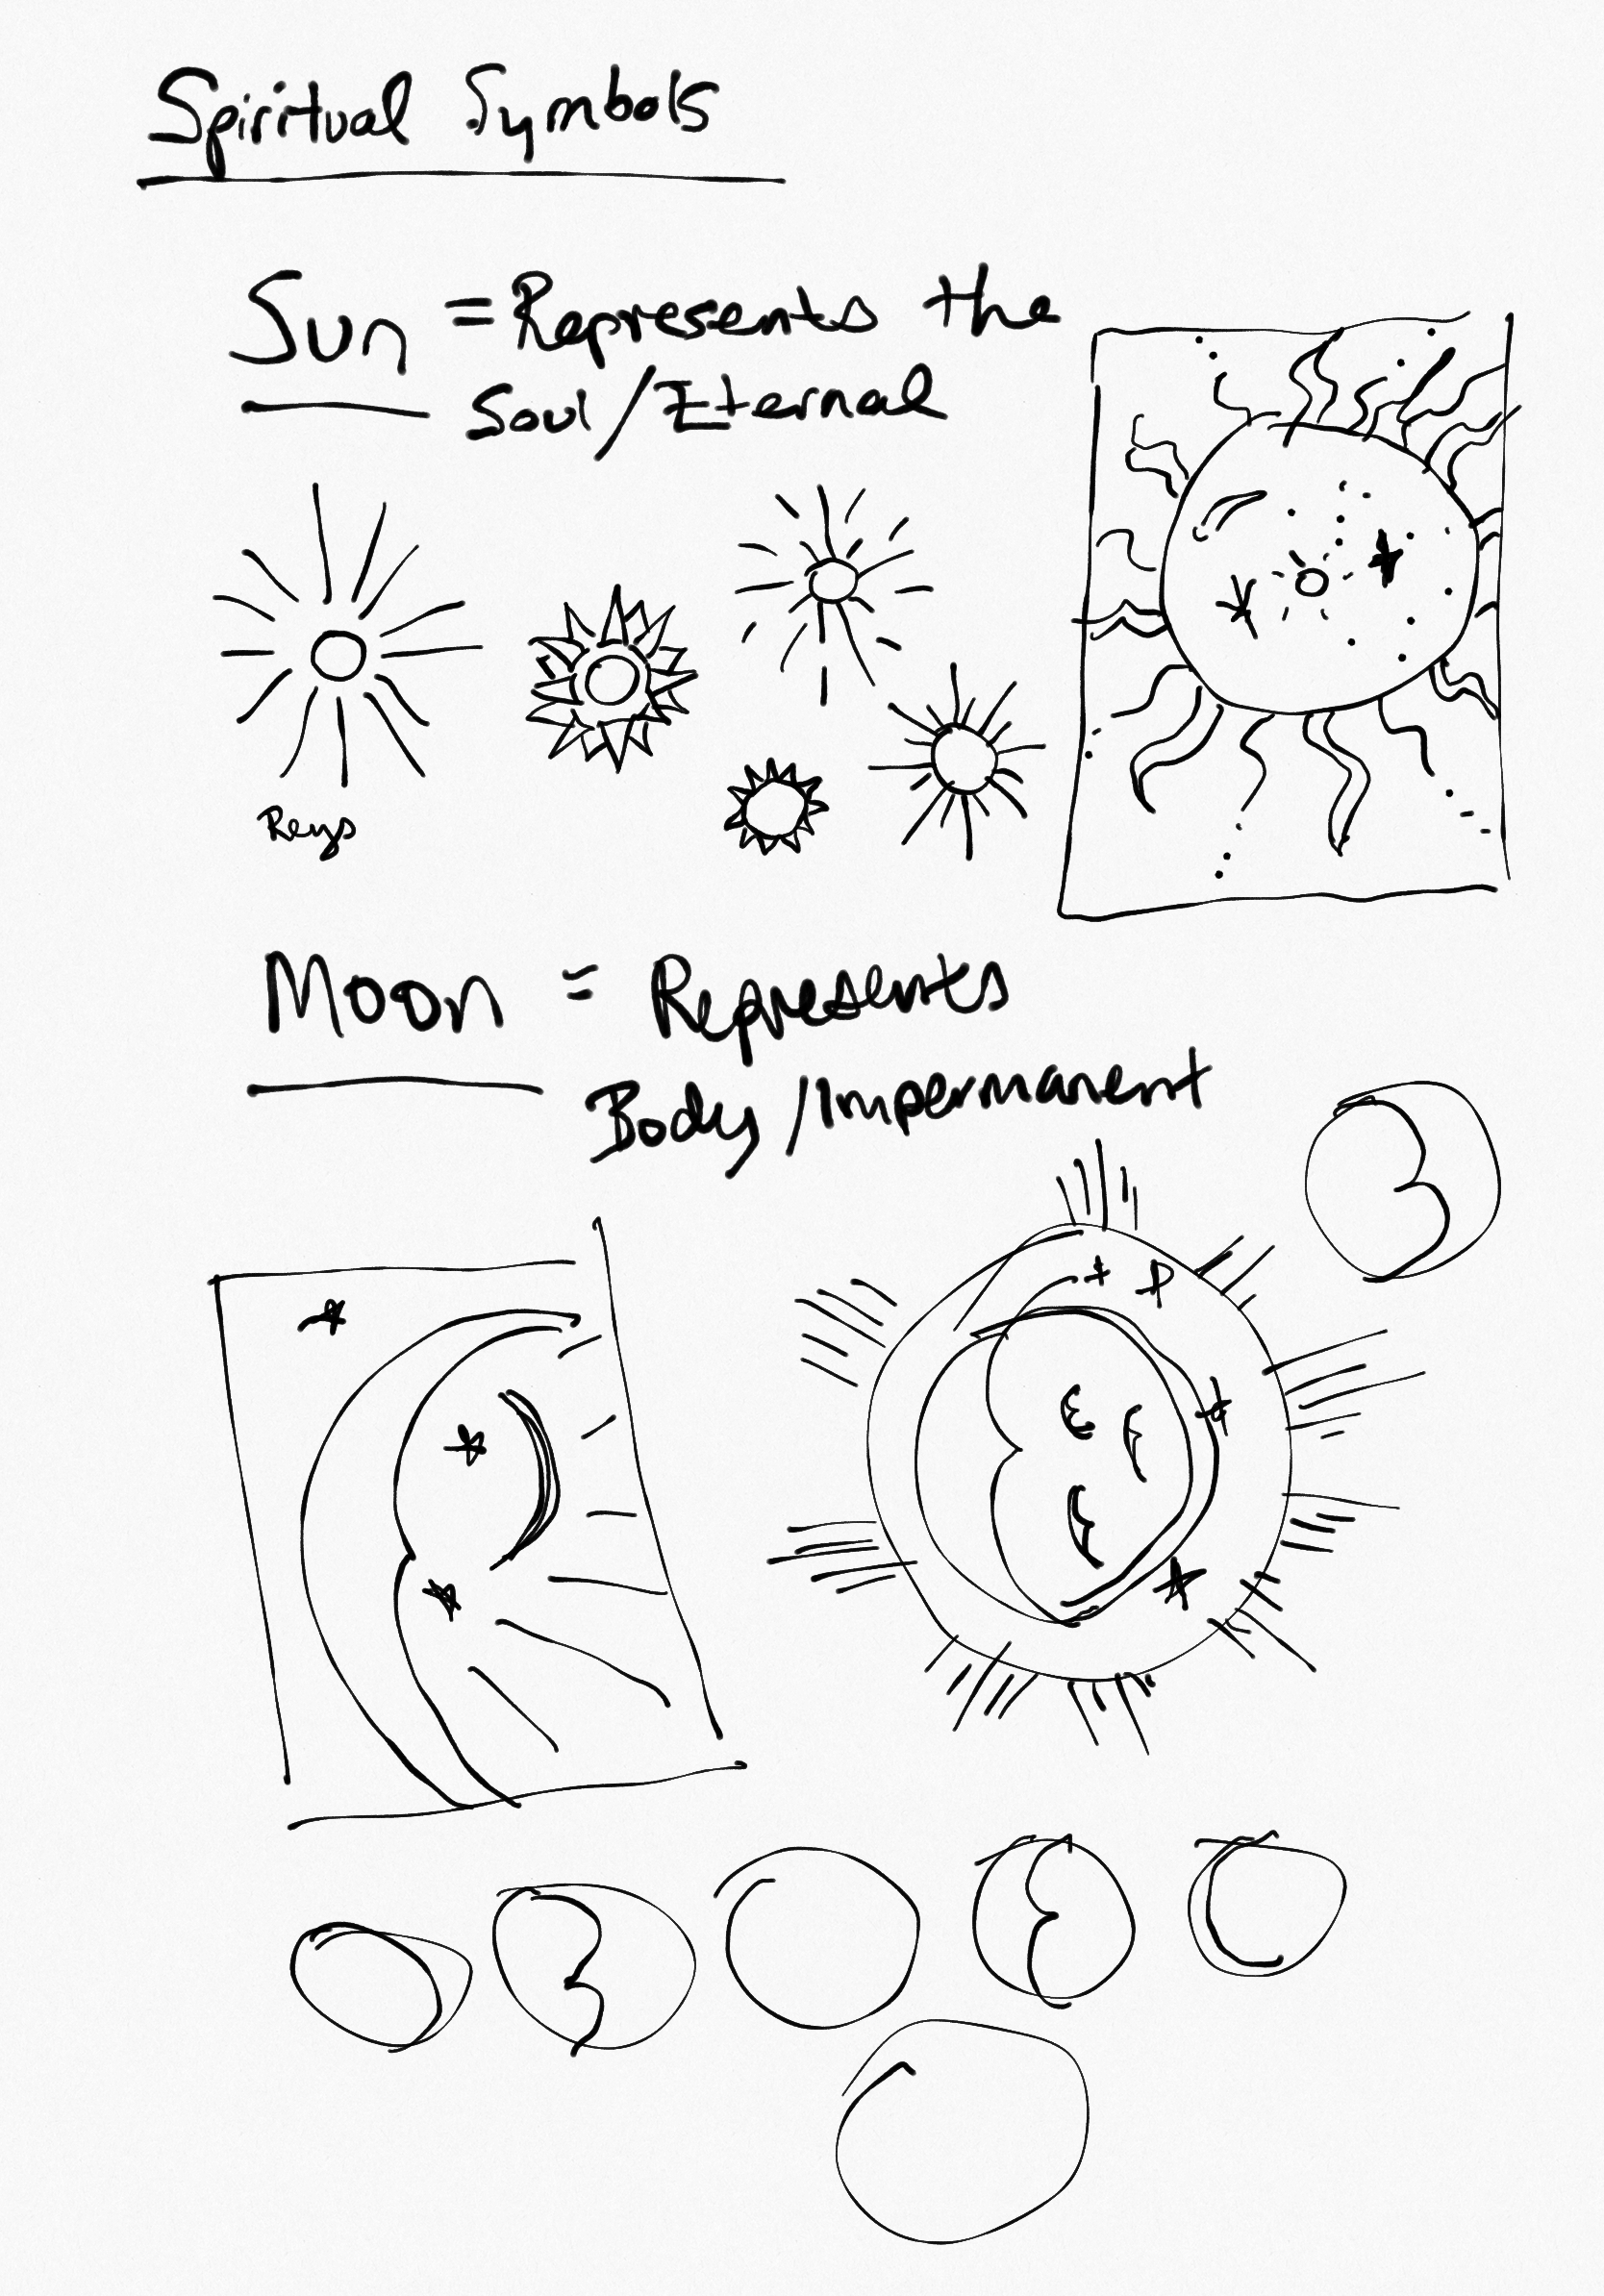 Spiritual Symbols
Sun = Represents the
Soul/Eternal
Rays
Moon = Represents
Body/Impermanent